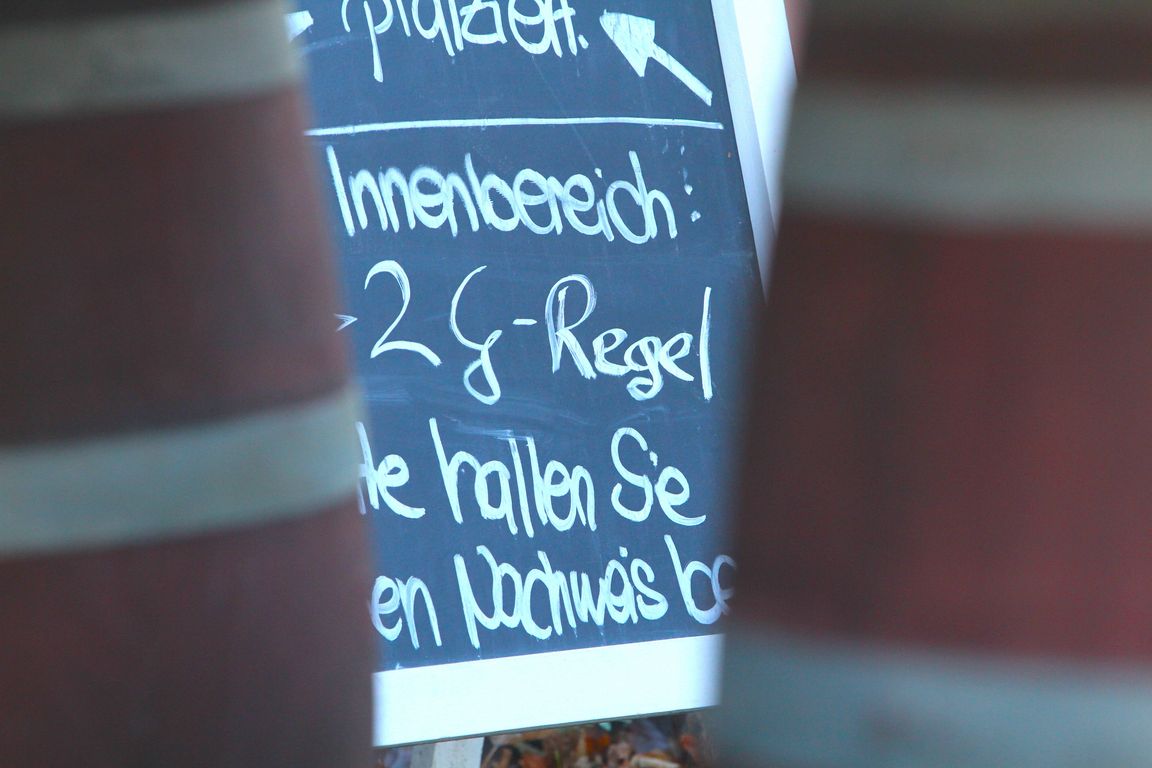 platziert.
Innenbereich:
2 G-Regel
te halten Sie
en Nachweis be